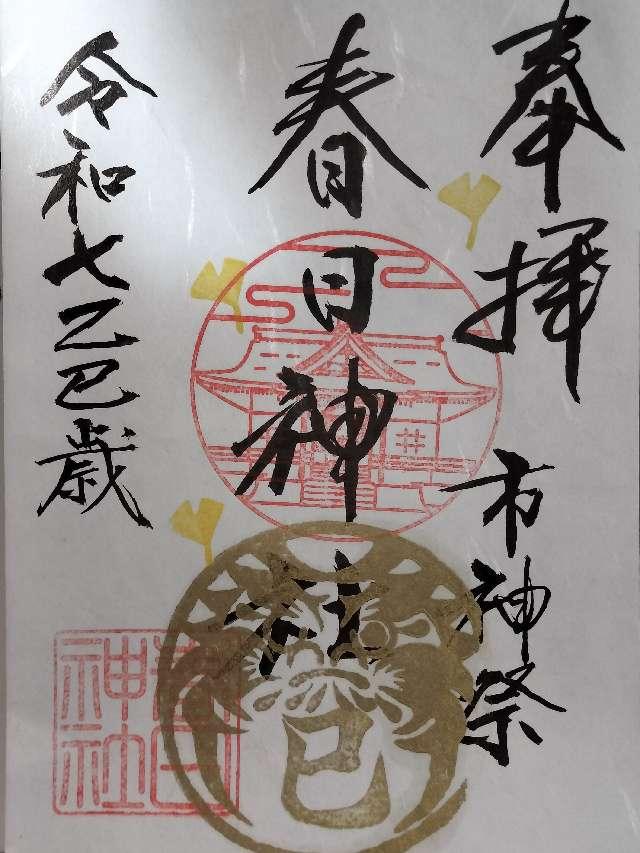 奉拝
市神祭
春日神社
令和七乙巳歳
春日
神社
巳